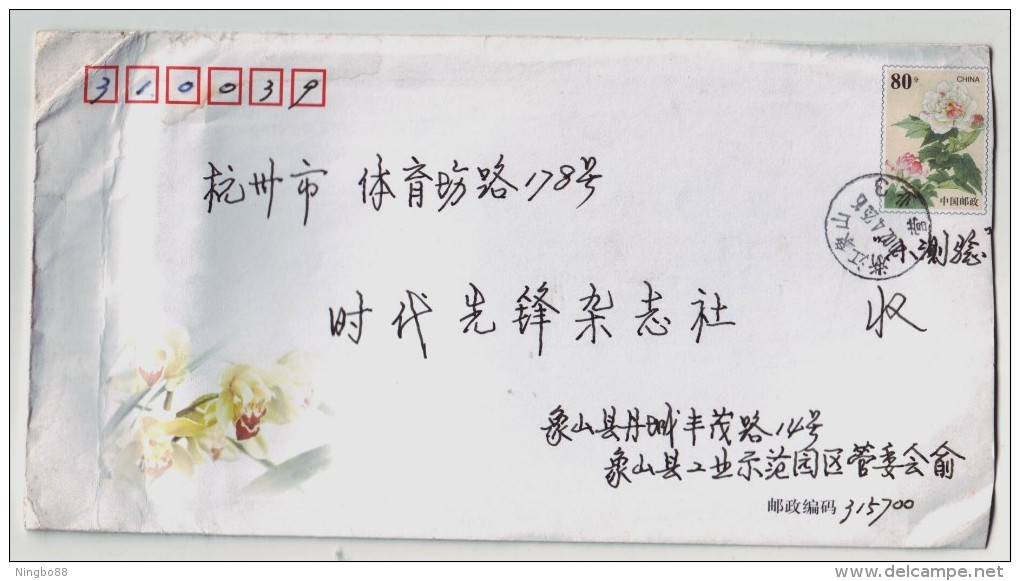 310039
80分 CHINA
中国邮政
杭州市 体育场路178号
浙江象山
测验
时代先锋杂志社 收
象山县丹城丰茂路14号
象山县工业示范园区管委会俞
邮政编码 315700
Ningbo88